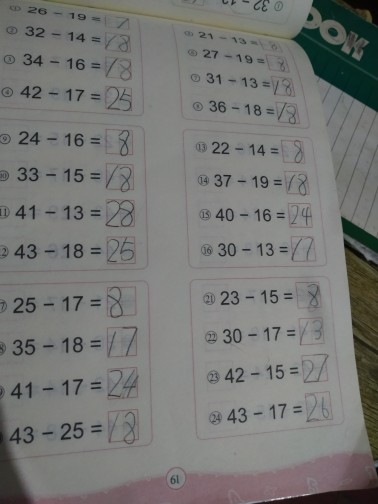 ① 26 − 19 = 7
② 32 − 14 = 18
③ 34 − 16 = 18
④ 42 − 17 = 25
⑤ 21 − 13 = 8
⑥ 27 − 19 = 8
⑦ 31 − 13 = 18
⑧ 36 − 18 = 18
⑨ 24 − 16 = 8
⑩ 33 − 15 = 18
⑪ 41 − 13 = 28
⑫ 43 − 18 = 25
⑬ 22 − 14 = 8
⑭ 37 − 19 = 18
⑮ 40 − 16 = 24
⑯ 30 − 13 = 17
25 − 17 = 8
35 − 18 = 17
41 − 17 = 24
43 − 25 = 18
㉑ 23 − 15 = 8
㉒ 30 − 17 = 13
㉓ 42 − 15 = 27
㉔ 43 − 17 = 26
61